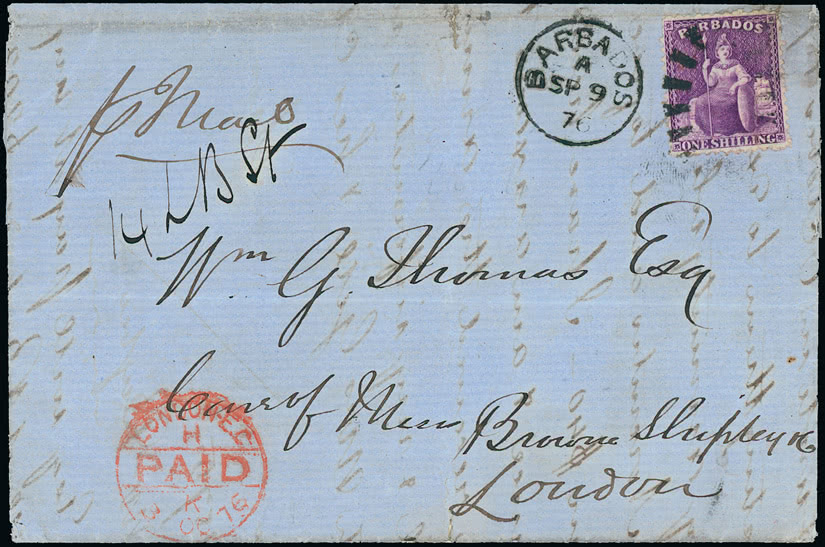 BARBADOS
A
SP 9
76
BARBADOS
ONE SHILLING
14 LB St
Wm G. Thomas Esq
Care of Messrs Brown Shipley & Co
London
LONDON E.C
H
PAID
K
3 OC 76